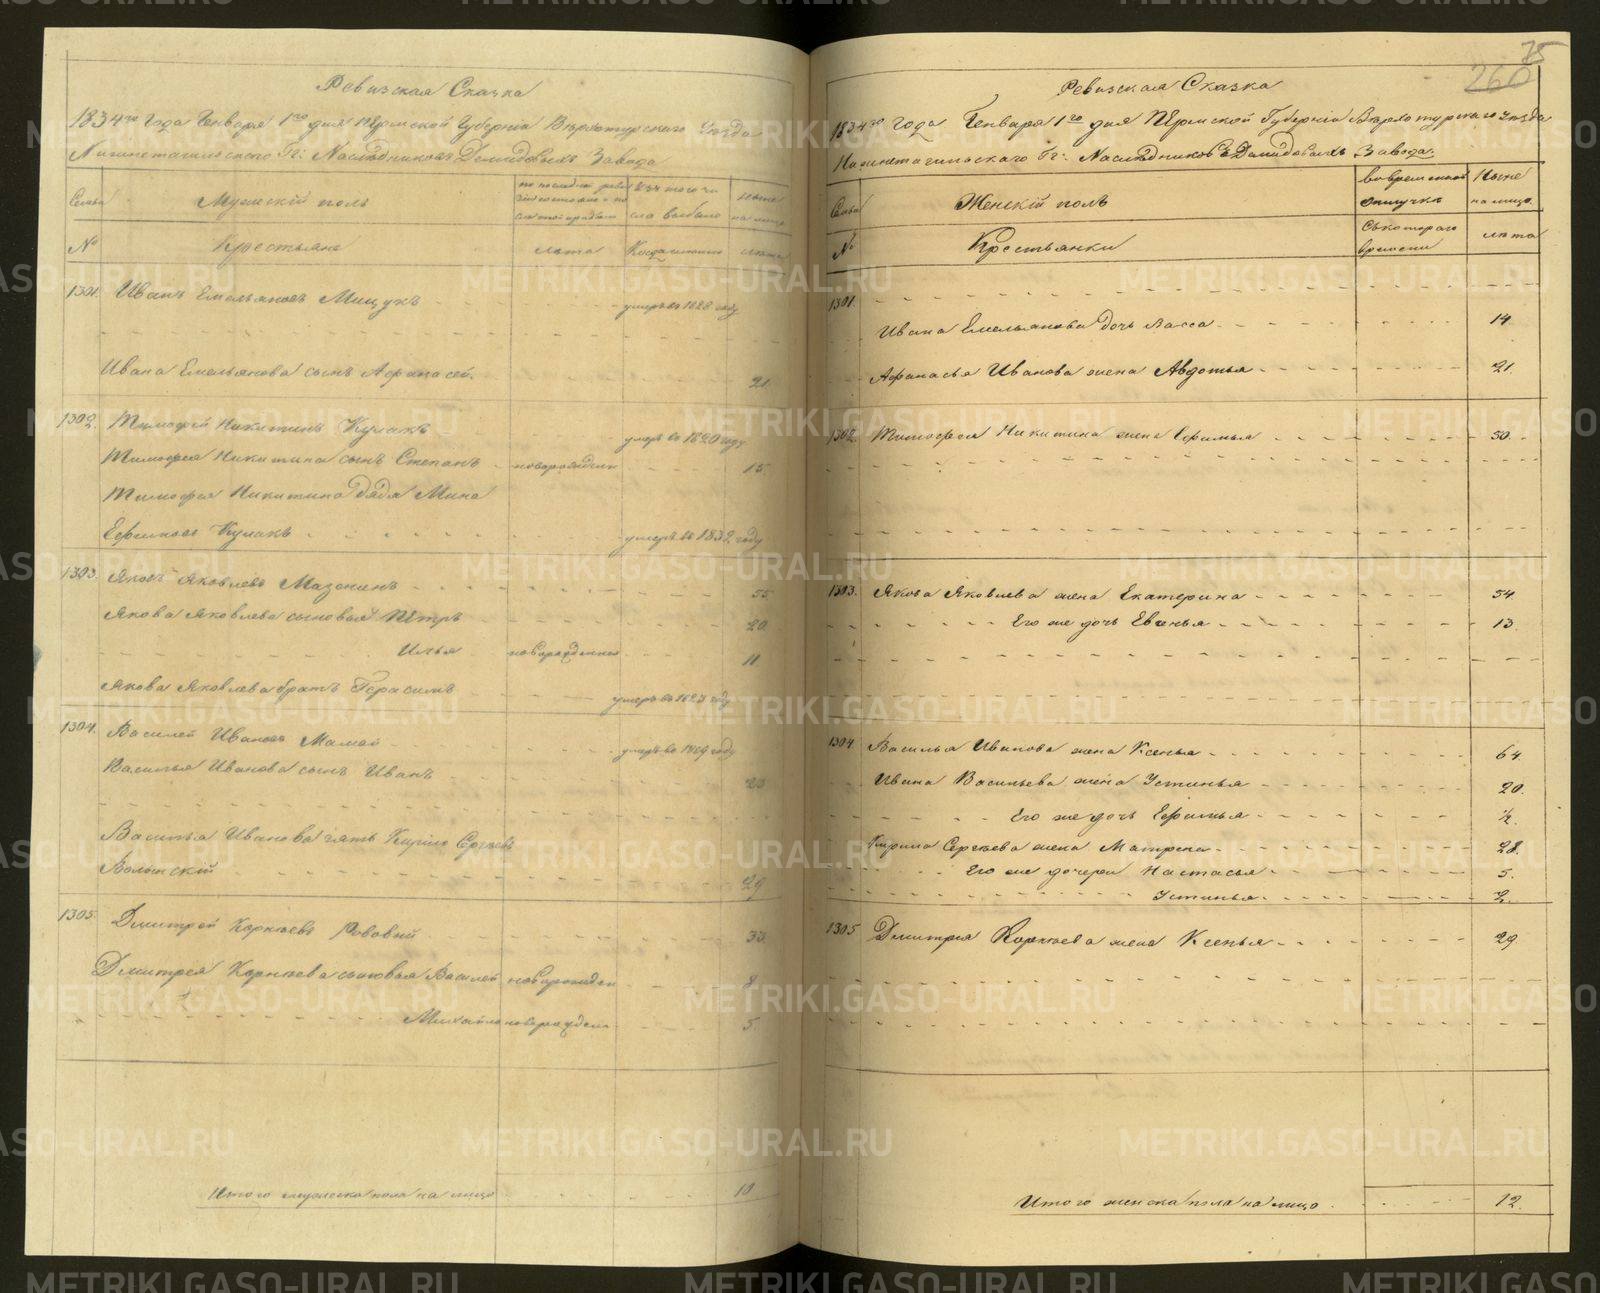 75
260
Ревизская Сказка
1834го Года Генваря 1го дня Пермской Губернiи Верхотурского Уезда
Нижнетагильского Гг: Наследниковъ Демидовыхъ Завода
Семьи
Мужескiй полъ
по последней реви
зiи состояло и по
Изъ того чи
сла выбыло
Ныне
на лицо
№
Крестьяне
лета
Когда имянно
лета
1301. Иванъ Емельяновъ Мищукъ умеръ въ 1828 году
Ивана Емельянова сынъ Афанасей. 21.
1302. Тимофей Никитинъ Кулакъ умеръ въ 1820 году
Тимофея Никитина сынъ Степанъ новорожден 15.
Тимофея Никитина дядя Мина
Ефимовъ Кулакъ умеръ въ 1832. году
1303. Яковъ Яковлевъ Мазенинъ 55.
Якова Яковлева сыновья Петръ 20
Илья новорожденн 11
Якова Яковлева братъ Герасимъ умеръ въ 1827 году
1304. Василей Ивановъ Мамай умеръ въ 1829 году
Василья Иванова сынъ Иванъ 23
Василья Иванова зять Кирило Сергеевъ
Волынскiй 29
1305. Дмитрей Корнеевъ Рововый 33.
Дмитрея Корнеева сыновья Василей новорожден 8
Михайло новорожден 5
Итого мужеска пола на лицо 10
Ревизская Сказка
1834го года Генваря 1го дня Пермской Губернiи Верхотурскаго Уезда
Нижнетагильскаго Гг: Наследниковъ Демидовыхъ Завода.
Семьи
Женскiй полъ
во временной
отлучке
Ныне
на лицо.
№
Крестьянки
Съ котораго
времени
лета
1301.
Ивана Емельянова дочь Васса 14.
Афанасья Иванова жена Авдотья 21.
1302 Тимофея Никитина жена Ефимья 50.
1303. Якова Яковлева жена Екатерина 54.
Его же дочь Евгенья 13.
1304 Василья Иванова жена Ксенья 64.
Ивана Васильева жена Устинья 20.
Его же дочь Ефимья ½.
Кирила Сергеева жена Матрена 28.
Его же дочери Настасья 5.
Устинья 2.
1305 Дмитрея Корнеева жена Ксенья 29
Итого женска пола на лицо 12.
METRIKI.GASO-URAL.RU